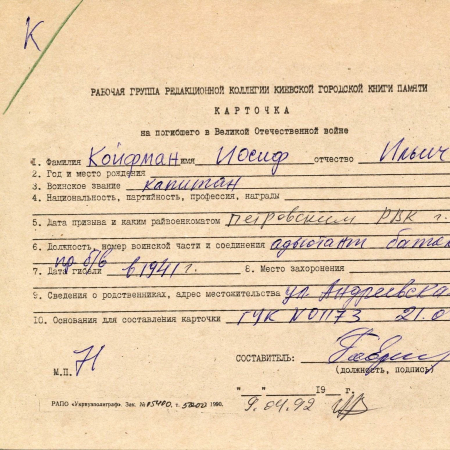 К
РАБОЧАЯ ГРУППА РЕДАКЦИОННОЙ КОЛЛЕГИИ КИЕВСКОЙ ГОРОДСКОЙ КНИГИ ПАМЯТИ
КАРТОЧКА
на погибшего в Великой Отечественной войне
1. Фамилия Койфман имя Иосиф отчество Ильич
2. Год и место рождения
3. Воинское звание капитан
4. Национальность, партийность, профессия, награды
5. Дата призыва и каким райвоенкоматом Петровским РВК г.
6. Должность, номер воинской части и соединения адъютант батал
пр б/в
7. Дата гибели в 1941 г. 8. Место захоронения
9. Сведения о родственниках, адрес местожительства ул. Андреевска
10. Основания для составления карточки ГУК N 01173 21.0
СОСТАВИТЕЛЬ:
(должность, подпись)
М.П.
"__" ____ 19__ г.
9.04.92
РАПО «Укрвузполиграф». Зак. № 1990.